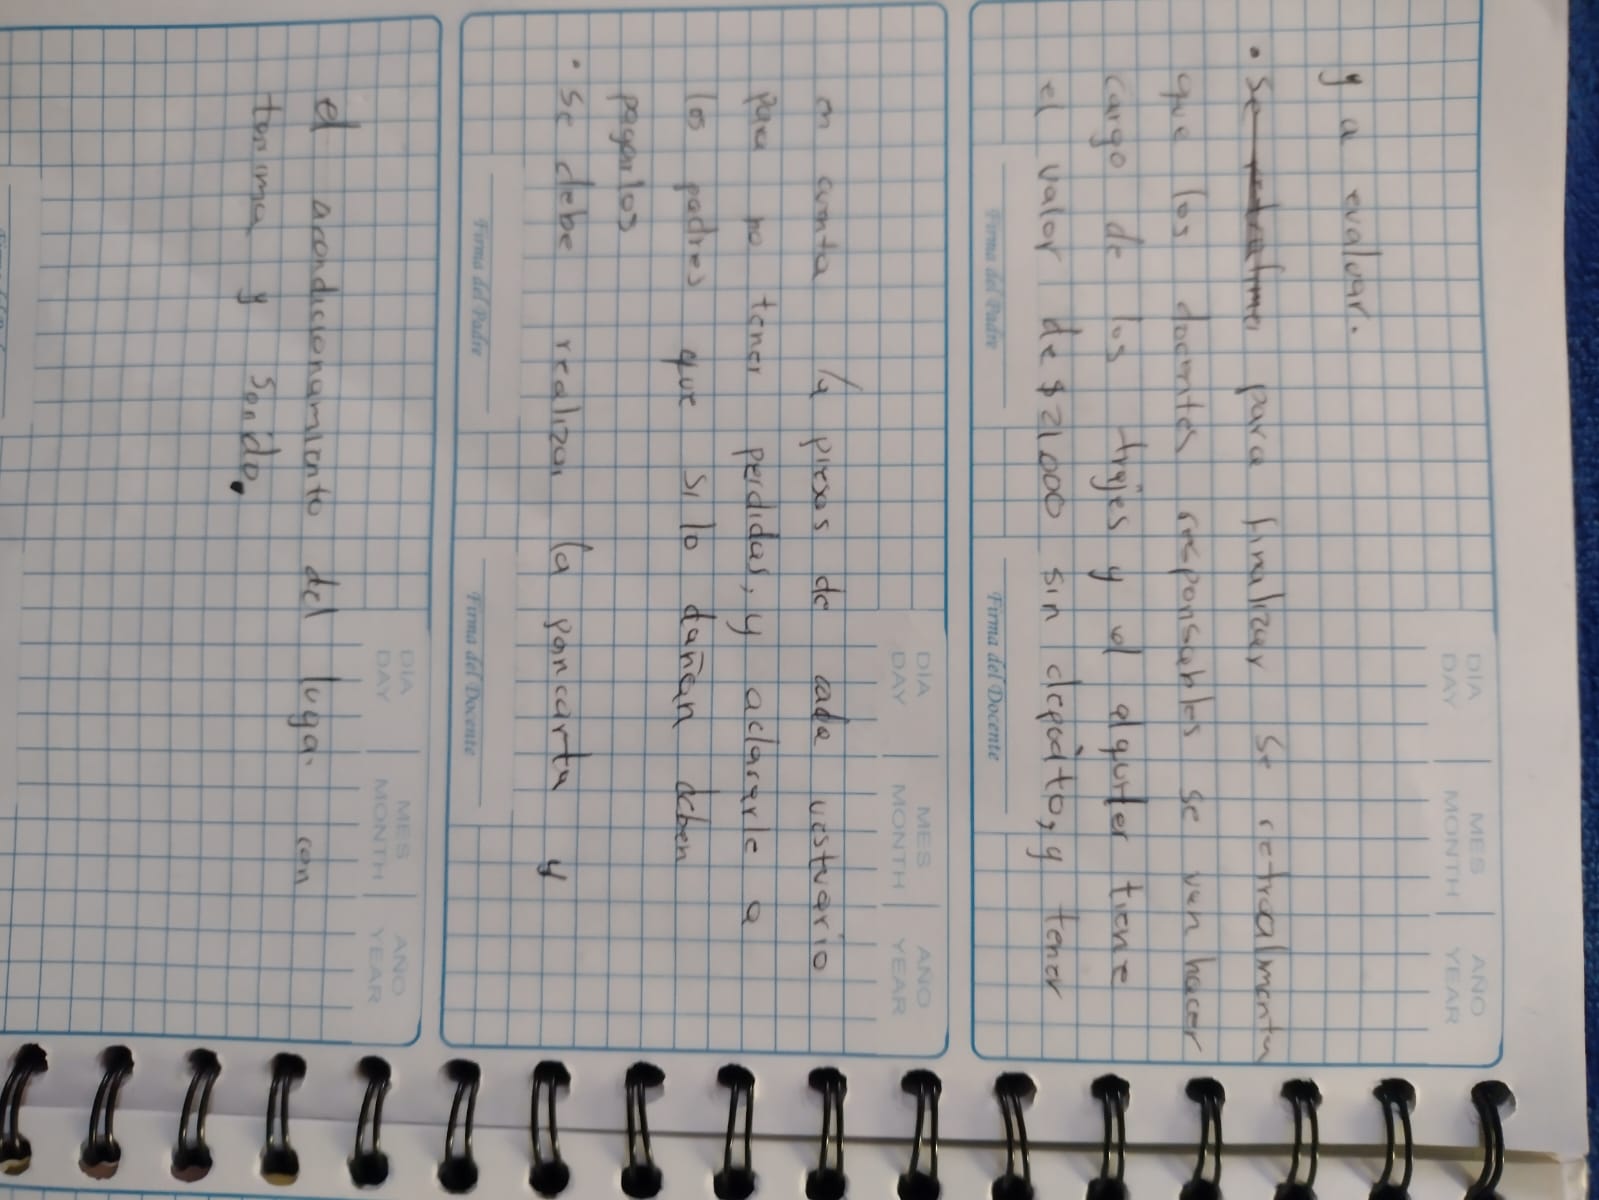 DIA MES AÑO
DAY MONTH YEAR
y a evaluar.
• Se para finalizar se retroalmenta
que los docentes responsables se van hacer
cargo de los trajes y el alquiler tiene
el valor de $21.000 sin depósito, y tener
Firma del Padre Firma del Docente
DIA MES AÑO
DAY MONTH YEAR
en cuenta la piesas de cada vestuario
para no tener perdidas, y aclararle a
los padres que si lo dañan deben
pagarlos
• se debe realizar la pancarta y
Firma del Padre Firma del Docente
DIA MES AÑO
DAY MONTH YEAR
el acondicionamiento del lugar con
tarima y sonido.